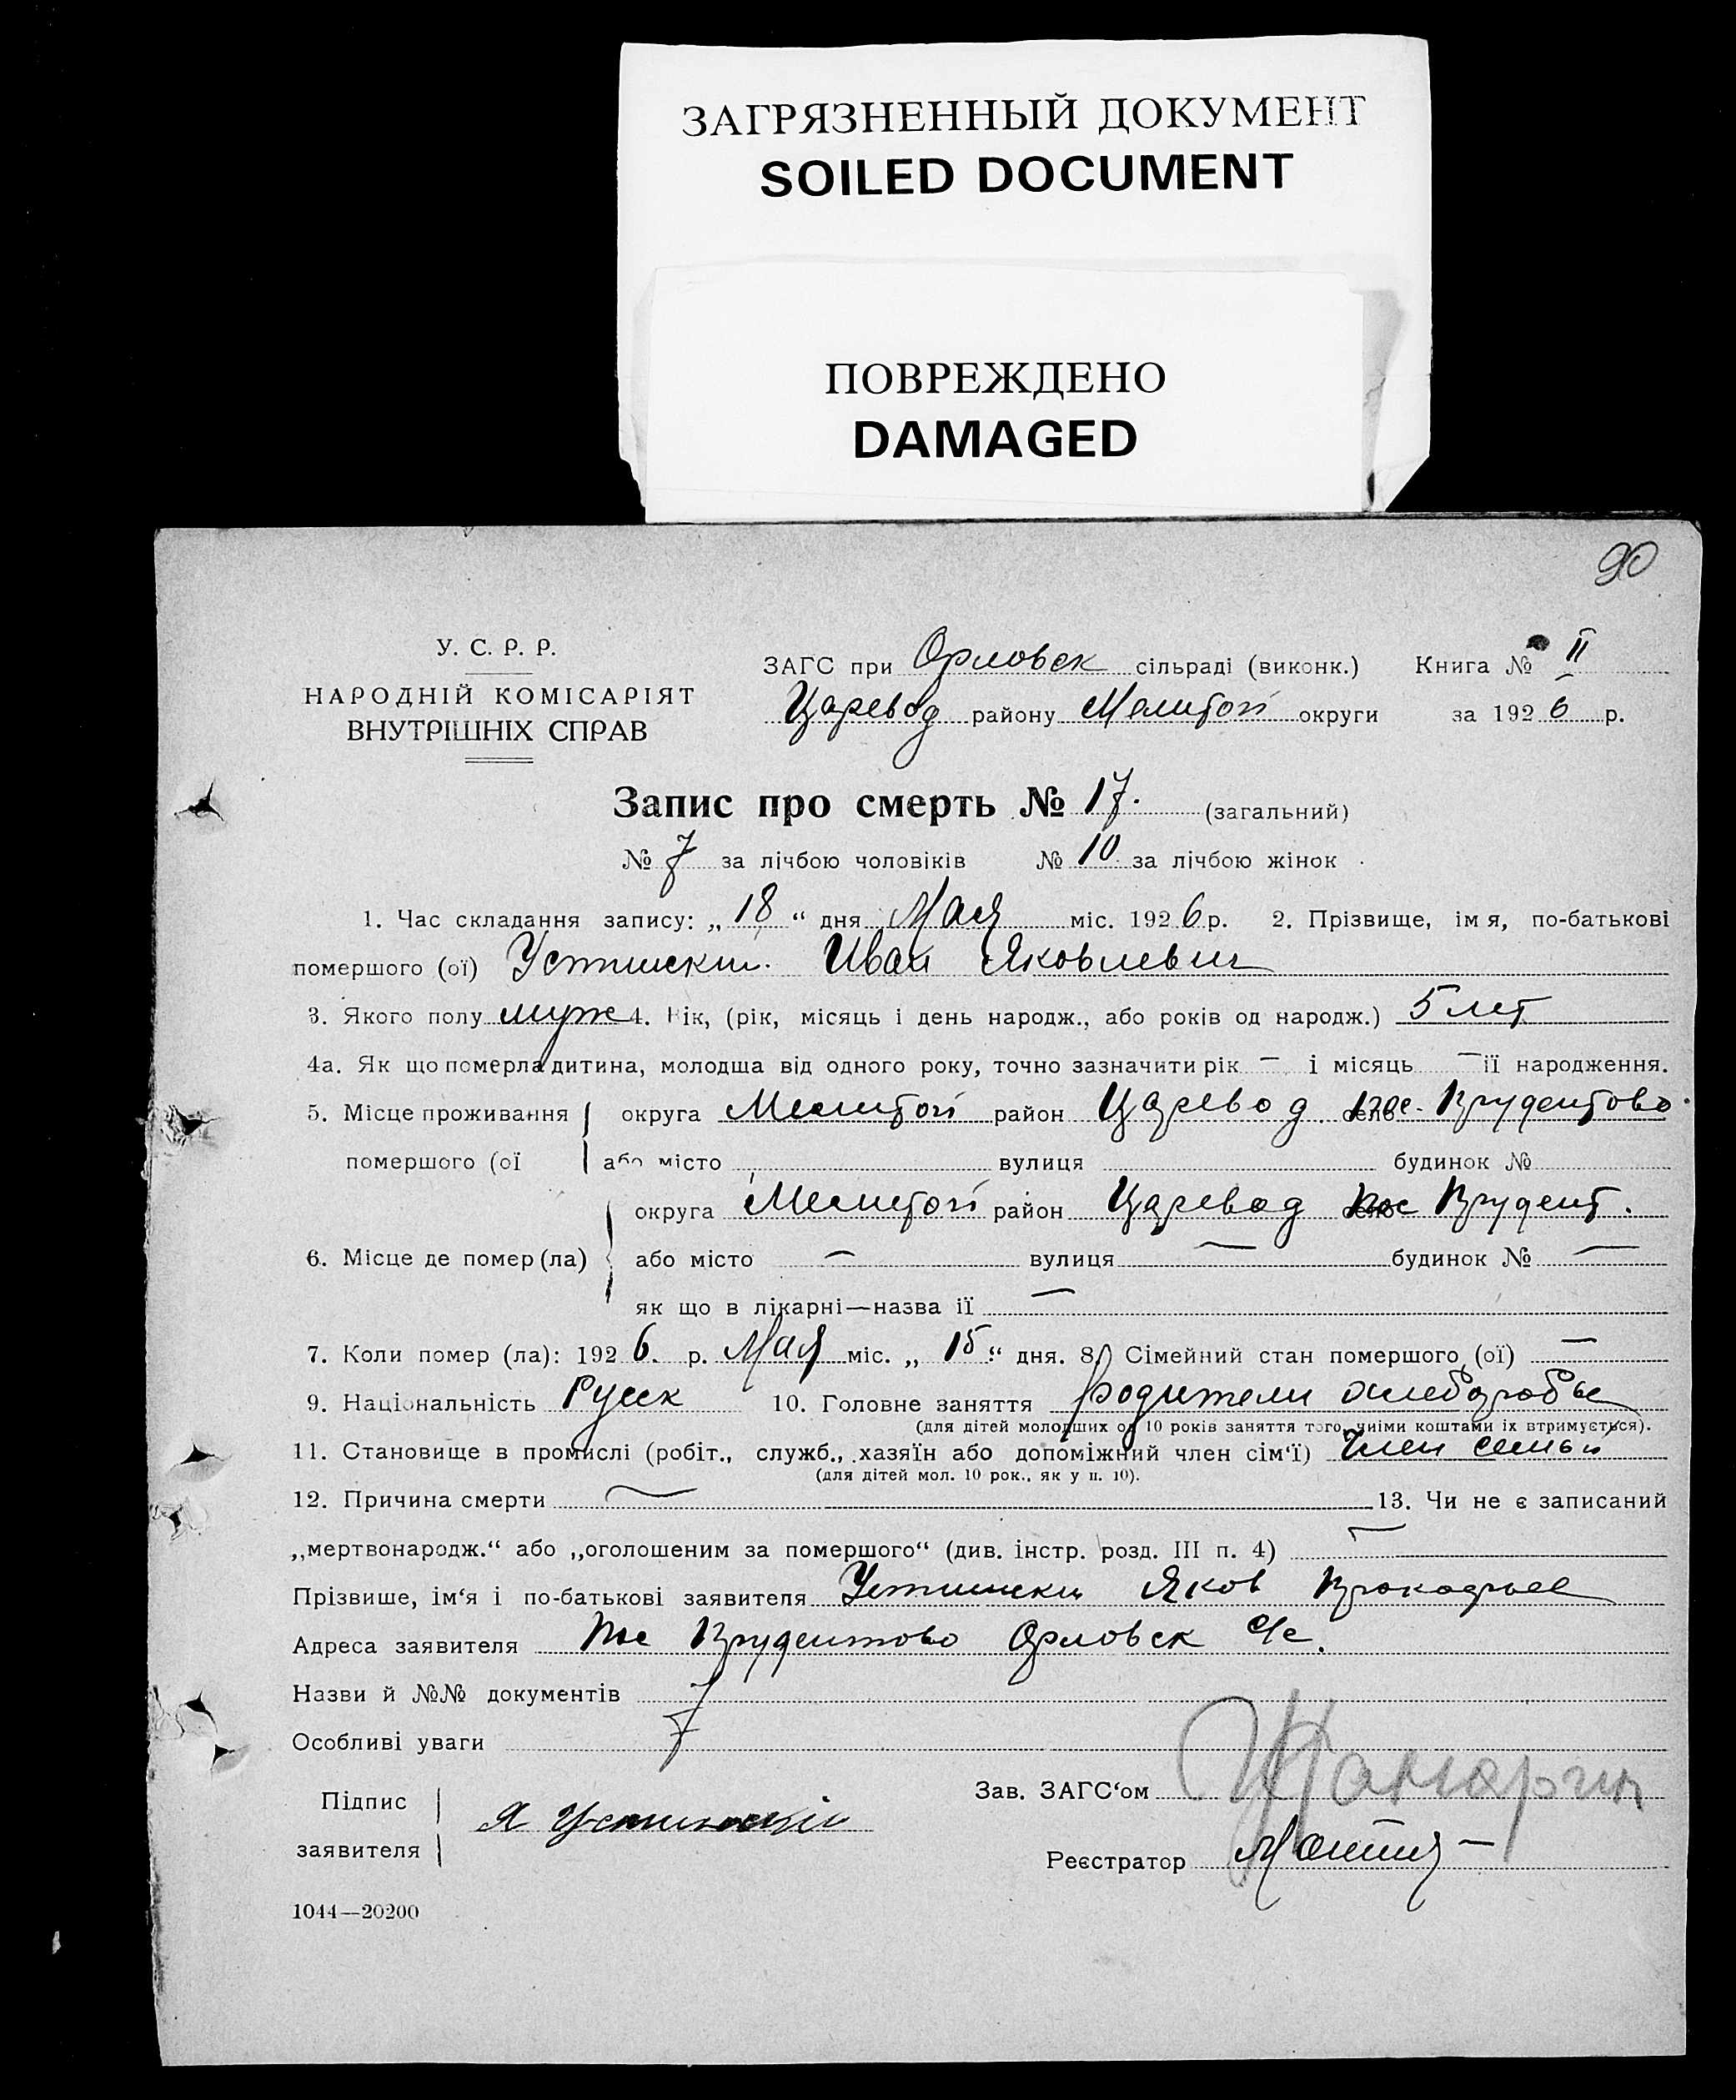 ЗАГРЯЗНЕННЫЙ ДОКУМЕНТ
SOILED DOCUMENT
ПОВРЕЖДЕНО
DAMAGED
90
У. С. Р. Р.
НАРОДНІЙ КОМІСАРІЯТ
ВНУТРІШНІХ СПРАВ
ЗАГС при Орловск сільраді (виконк.) Книга № II
Царевод району Мелитоп округи за 1926 р.
Запис про смерть № 17. (загальний)
№ 7 за лічбою чоловіків № 10 за лічбою жінок
1. Час складання запису: „18“ дня Мая міс. 1926 р. 2. Прізвище, імя, по-батькові
помершого (ої) Устински. Иван Яковлевич
3. Якого полу муж 4. Вік, (рік, місяць і день народж., або років од народж.) 5 лет
4а. Як що померла дитина, молодша від одного року, точно зазначити рік — і місяць — її народження.
5. Місце проживання округа Мелитоп район Царевод пос. Прудентово.
помершого (ої або місто вулиця будинок №
округа Мелитоп район Царевод пос Прудент.
6. Місце де помер (ла) або місто — вулиця — будинок № —
як що в лікарні—назва її —
7. Коли помер (ла): 1926. р. Мая міс. „15“ дня. 8. Сімейний стан помершого (ої) —
9. Національність Русск 10. Головне заняття родители хлеборобы
(для дітей молодших од 10 років заняття того, чиїми коштами їх втримується).
11. Становище в промислі (робіт., служб., хазяїн або допоміжний член сім'ї) Член семьи
(для дітей мол. 10 рок., як у п. 10).
12. Причина смерти — 13. Чи не є записаний
„мертвонародж.“ або „оголошеним за помершого“ (див. інстр. розд. III п. 4) —
Прізвише, ім‘я і по-батькові заявителя Устински Яков Прокофьев
Адреса заявителя Пос Прудентово Орловск с/с.
Назви й №№ документів
Особливі уваги
Підпис
заявителя Я Устинский
Зав. ЗАГС‘ом
Реєстратор
1044—20200